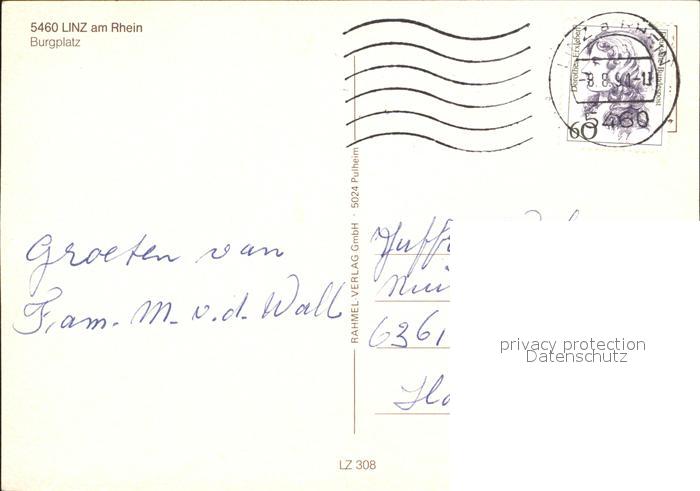 5460 LINZ am Rhein
Burgplatz
LINZ a. RHEIN
-8.8.91-11
5460
Dorothea Erxleben
Deutsche Bundespost
60
Groeten van
Fam. M. v.d. Wall
RAHMEL-VERLAG GmbH · 5024 Pulheim
6361
privacy protection
Datenschutz
LZ 308